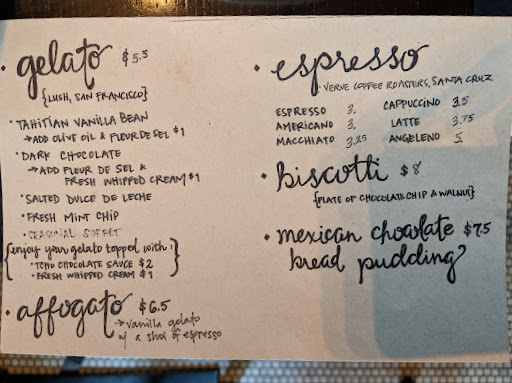 • gelato $5.5
{LUSH, SAN FRANCISCO}
• TAHITIAN VANILLA BEAN
→ ADD OLIVE OIL & FLEUR DE SEL $1
• DARK CHOCOLATE
→ ADD FLEUR DE SEL &
FRESH WHIPPED CREAM $1
• SALTED DULCE DE LECHE
• FRESH MINT CHIP
• SEASONAL SORBET
{enjoy your gelato topped with:
• TCHO CHOCOLATE SAUCE $2
• FRESH WHIPPED CREAM $1}
• affogato $6.5
→ vanilla gelato
w/ a shot of espresso
• espresso
VERVE COFFEE ROASTERS, SANTA CRUZ
ESPRESSO 3. CAPPUCCINO 3.5
AMERICANO 3. LATTE 3.75
MACCHIATO 3.25 ANGELENO 5.
• biscotti $8
{PLATE OF CHOCOLATE CHIP & WALNUT}
• mexican chocolate $7.5
bread pudding